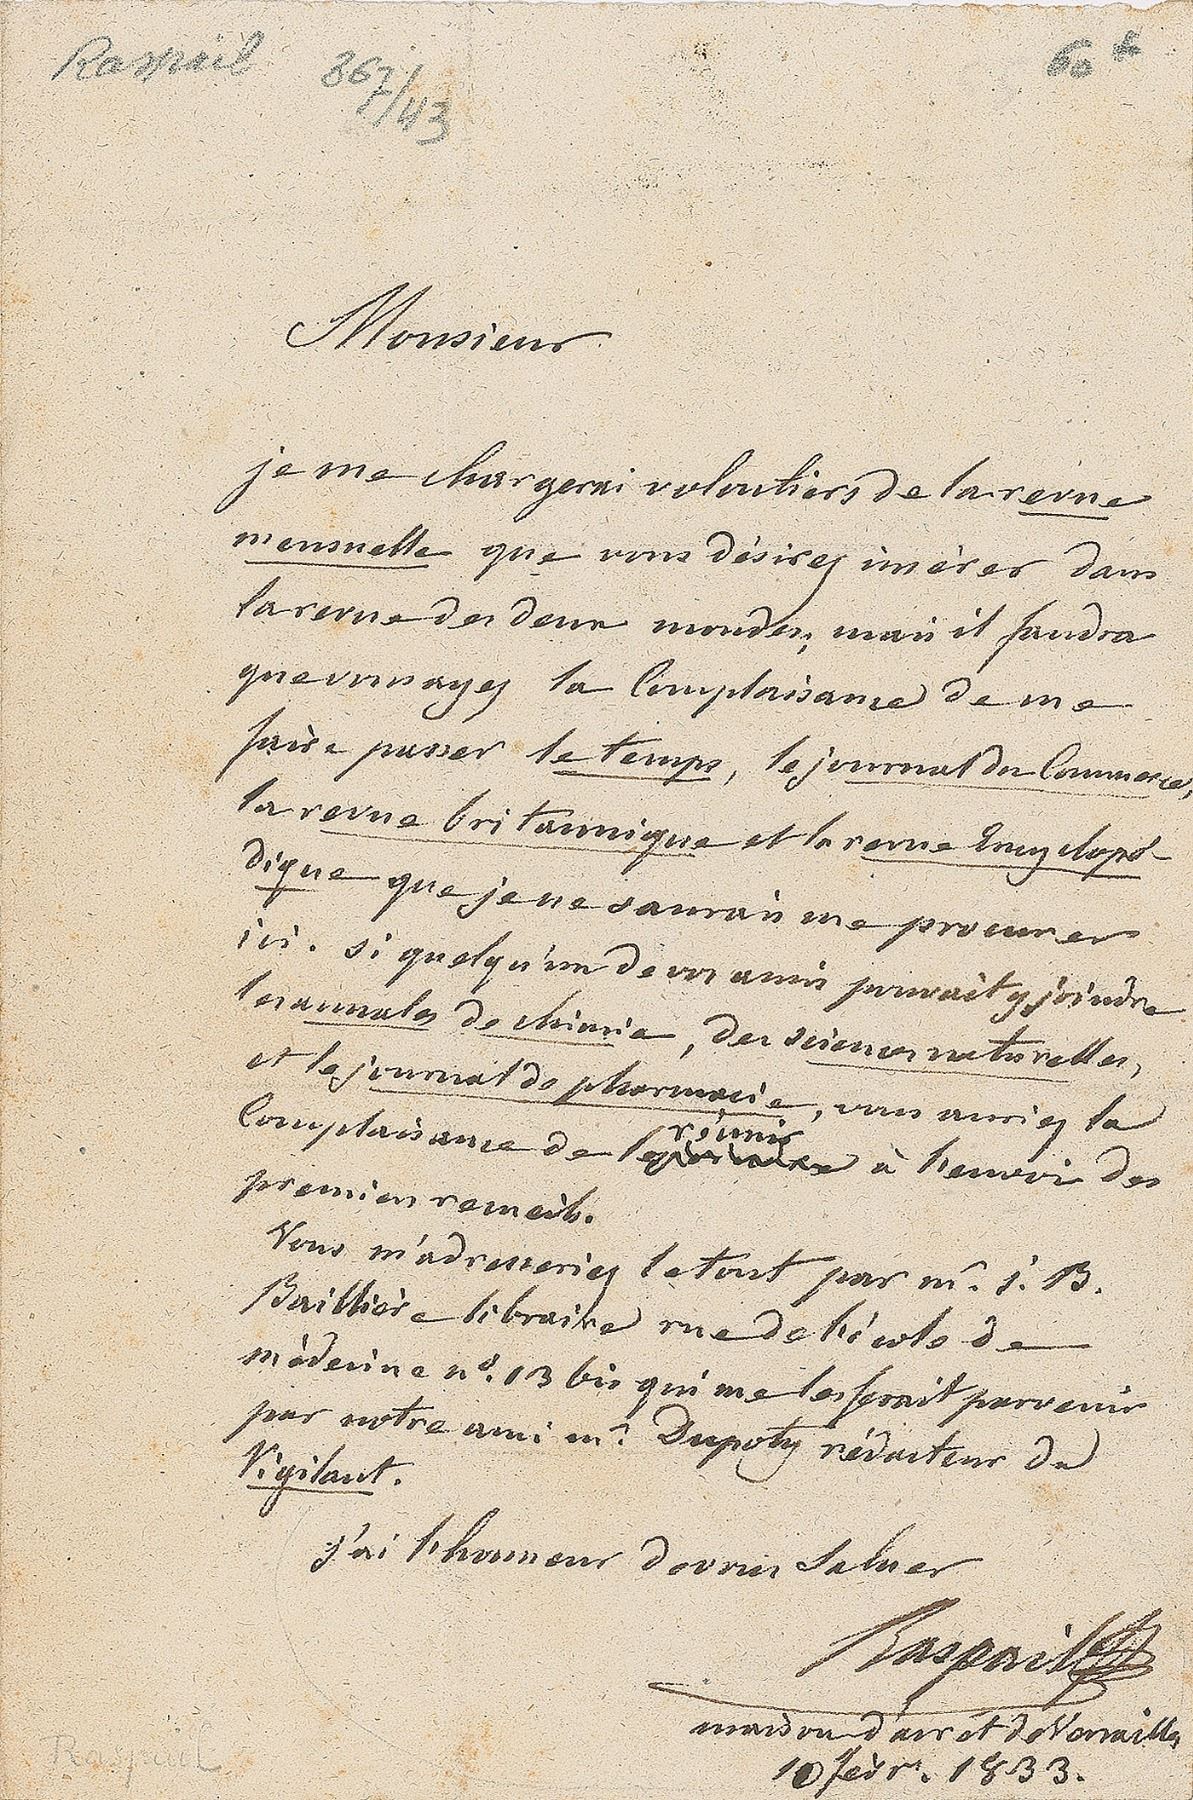 Raspail 367/
7/43
60 f
Monsieur
je me chargerai volontiers de la revue
mensuelle que vous désirez insérer dans
la revue des deux mondes; mais il faudra
que vous ayez la complaisance de me
faire passer le temps, le journal du Commerce,
la revue britannique et la revue Encyclopé-
dique que je ne saurais me procurer
ici. si quelqu'un de vos amis pouvait y joindre
les annales de chimie, des sciences naturelles,
et le journal de pharmacie, vous auriez la
réunir
Complaisance de les à l'envoi des
premiers recueils.
Vous m'adresseriez le tout par mr. j. B.
Baillière libraire rue de l'école de
médecine no. 13 bis qui me les ferait parvenir
par notre ami mr. Dupoty rédacteur du
Vigilant.
j'ai l'honneur de vous saluer
Raspail
maison d'arrêt de Versailles
10 févr. 1833.
Raspail